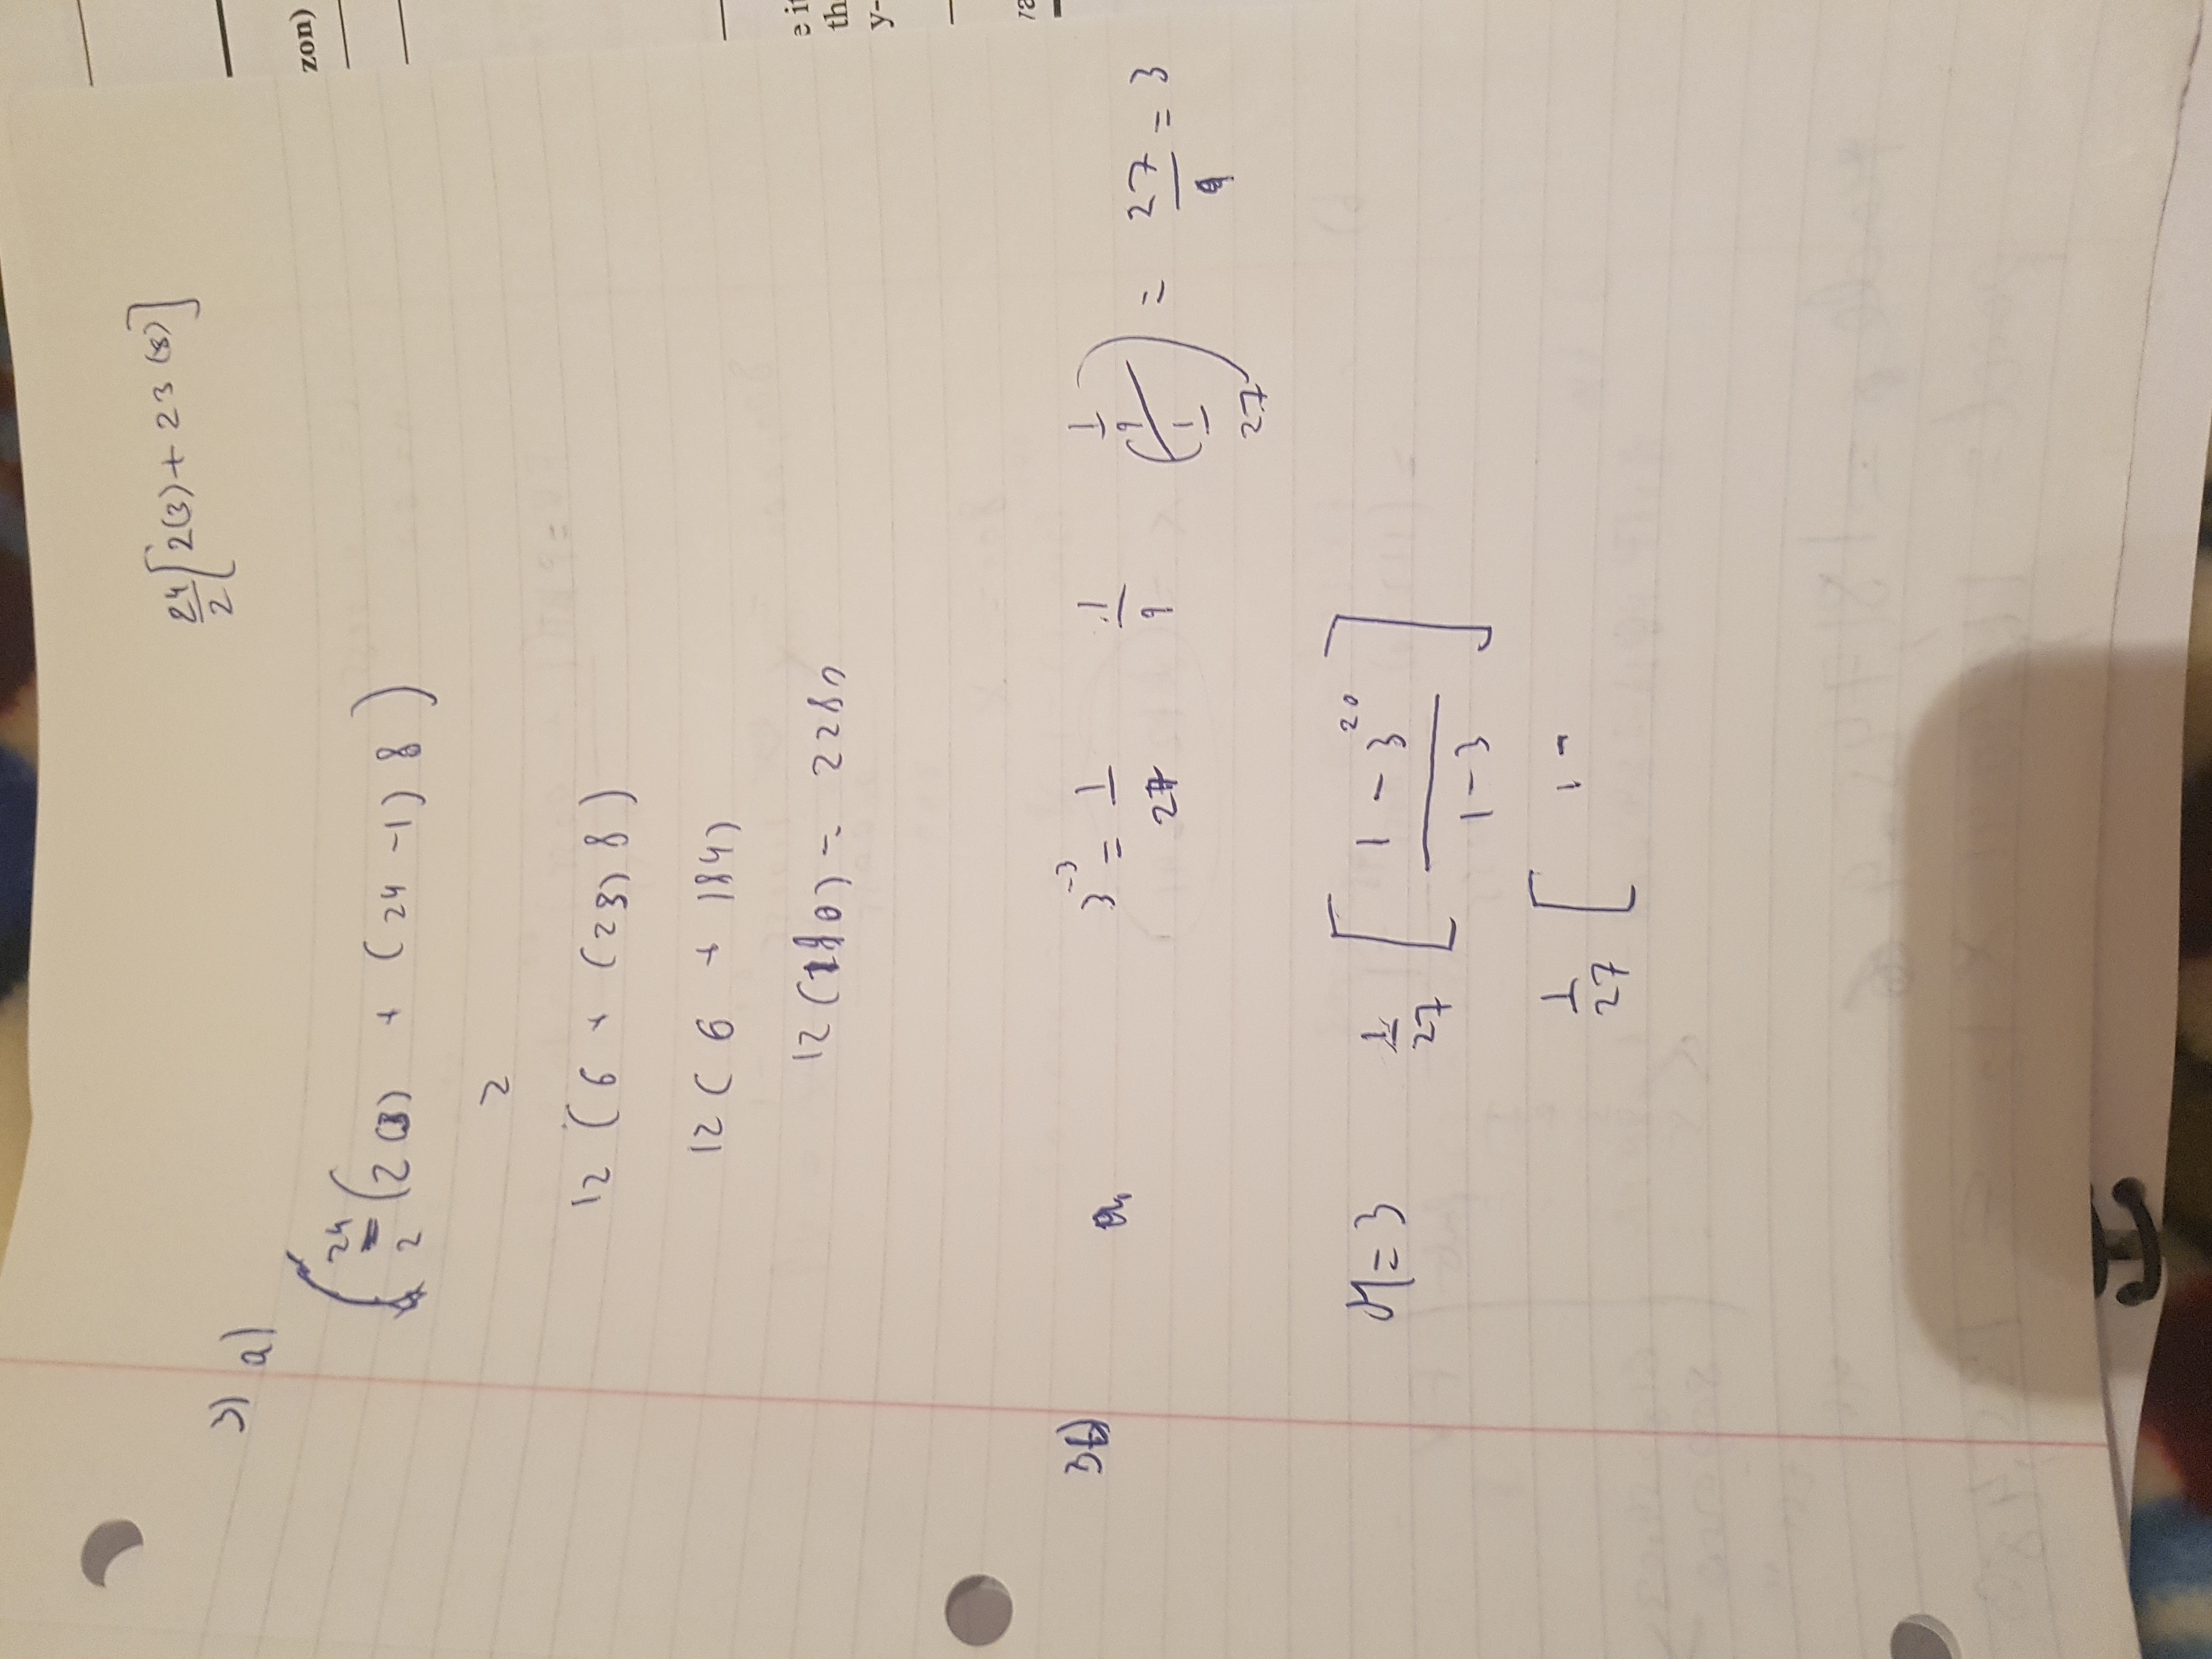 24/2 [2(3) + 23(8)]
3) a)
24/2 (2(3) + (24 - 1) 8)
2
12 (6 + (23) 8)
12 (6 + 184)
12 (190) = 2280
3b) a₁ 3⁻³ = 1/27 1/9 (1/9 / 1/27) = 27/9 = 3
r = 3 1/27 [1 - 3²⁰ / 1 - 3]
1/27 [ 1 -
zon)
e i
th
y-